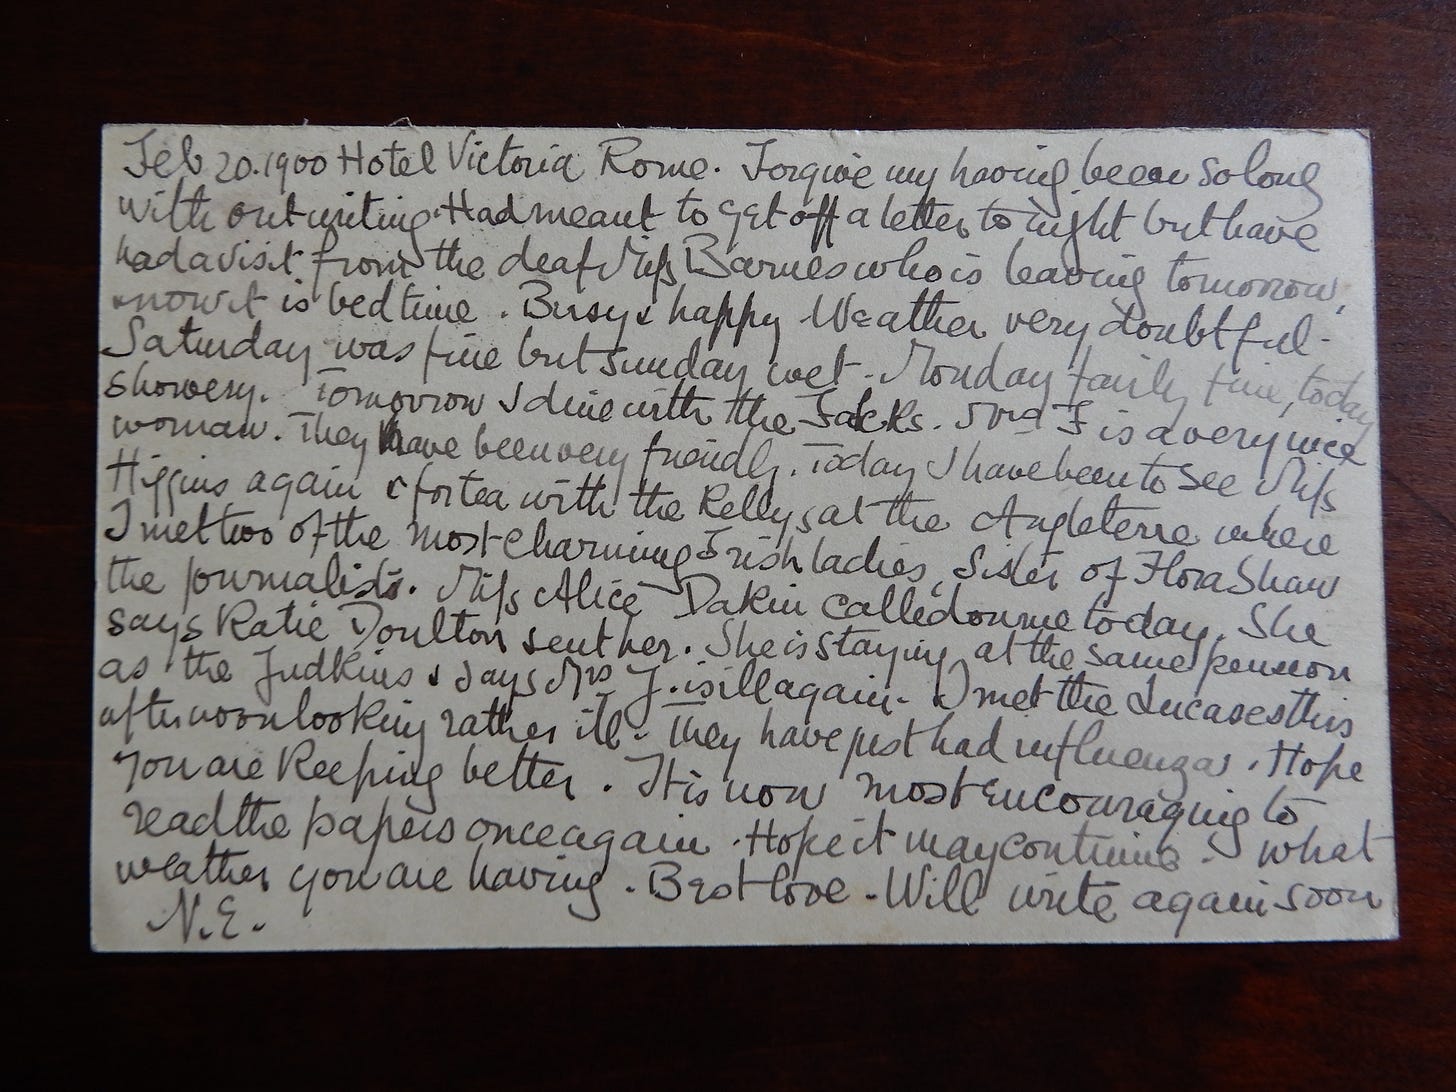 Feb 20. 1900 Hotel Victoria Rome. Forgive my having been so long
with out writing. Had meant to get off a letter to night but have
had a visit from the deaf Miss Barnes who is leaving tomorrow,
& now it is bedtime. Busy & happy Weather very doubtful -
Saturday was fine but Sunday wet - Monday fairly fine, today
showery. Tomorrow I dine with the . Mrs F is a very nice
woman. They have been very friendly. Today I have been to see Miss
Higgins again & for tea with the Kellys at the Angleterre where
I met two of the most charming Irish ladies, Sister of Flora Shaw
the journalist. Miss Alice Dakin called on me today. She
says Katie Doulton sent her. She is staying at the same pension
as the Judkins & says Mrs J. is ill again - I met the Lucases this
afternoon looking rather ill - They have just had influenzas. Hope
you are keeping better. It is now most encouraging to
read the papers once again. Hope it may continue - what
weather you are having. Best love - Will write again soon
N.E.